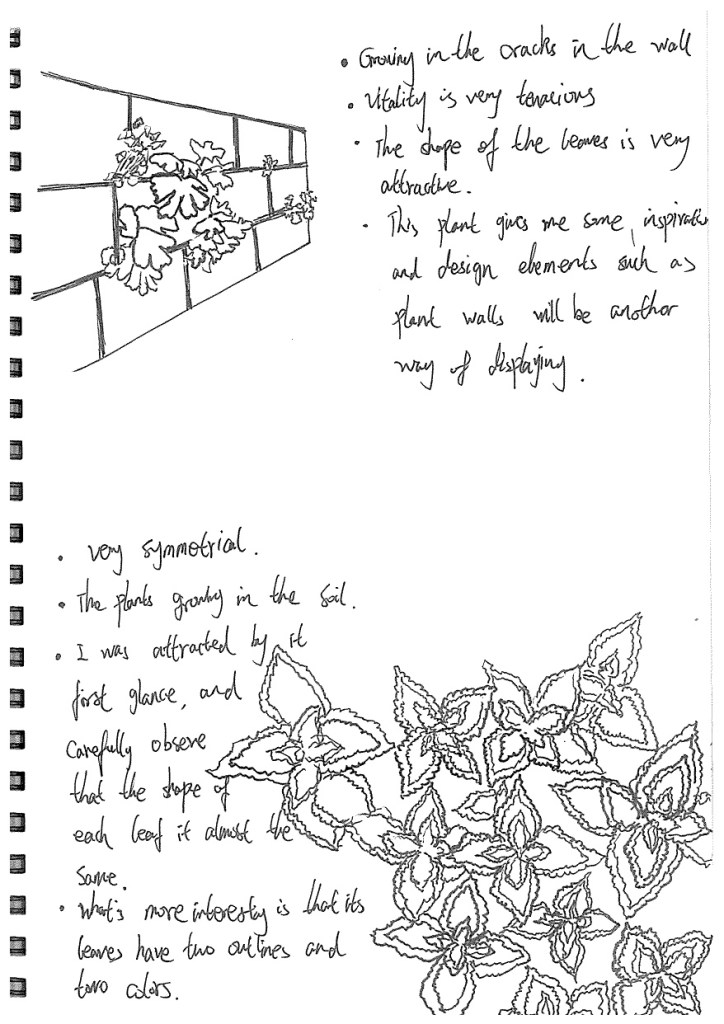 • Growing in the cracks in the wall
• Vitality is very tenacious
• The shape of the leaves is very
attractive.
• This plant gives me some inspiration
and design elements such as
plant walls will be another
way of displaying.
• very symmetrial.
• The plants growing in the soil.
• I was attracted by it
first glance, and
carefully observe
that the shape of
each leaf it almost the
same.
• What's more interesty is that its
leaves have two outlines and
two colors.